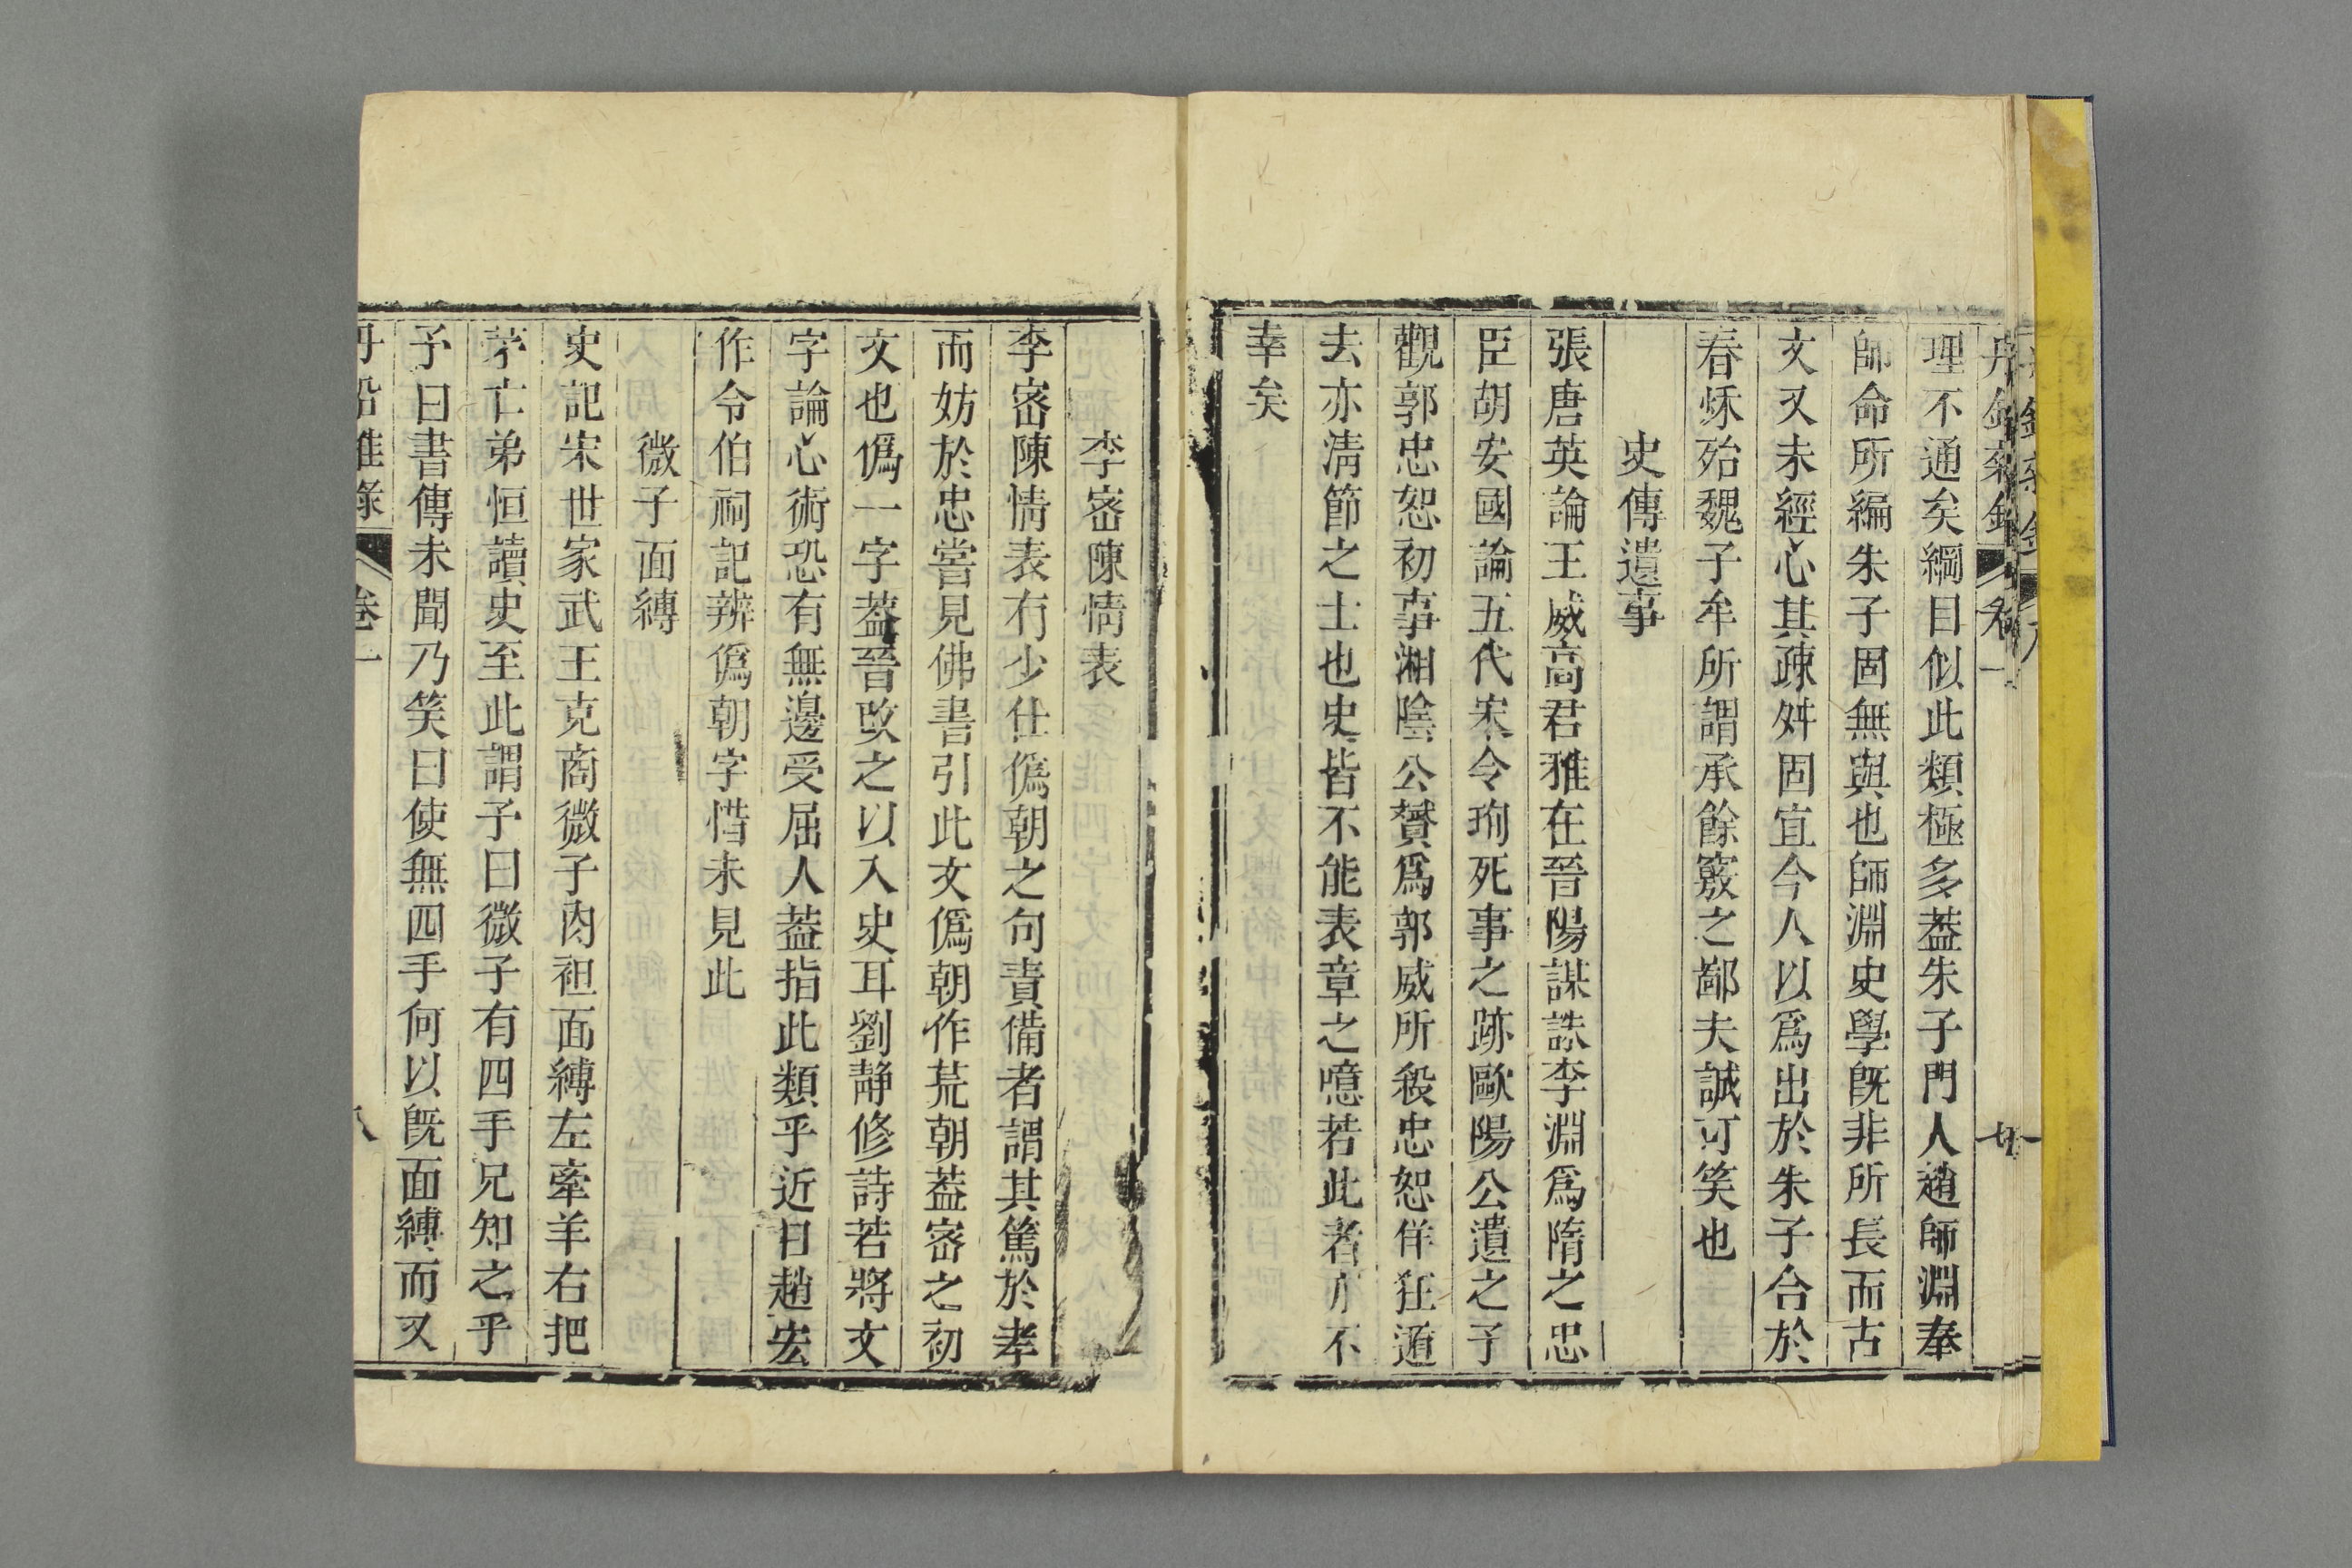 理不通矣綱目似此類極多葢朱子門人趙師淵奉
師命所編朱子固無與也師淵史學旣非所長而古
文又未經心其疎舛固宜今人以爲出於朱子合於
春秋殆魏子牟所謂承餘竅之鄙夫誠可笑也
史傳遺事
張唐英論王威高君雅在晉陽謀誅李淵爲隋之忠
臣胡安國論五代宋令珣死事之跡歐陽公遺之予
觀郭忠恕初事湘陰公贇爲郭威所殺忠恕佯狂遁
去亦淸節之士也史皆不能表章之噫若此者不
幸矣
李宻陳情表
李宻陳情表有少仕僞朝之句責備者謂其篤於孝
而妨於忠嘗見佛書引此文僞朝作荒朝葢宻之初
文也僞一字葢晉改之以入史耳劉靜修詩若將文
字論心術恐有無邊受屈人葢指此類乎近日趙宏
作令伯祠記辨僞朝字惜未見此
微子面縛
史記宋世家武王克商微子肉袒面縛左牽羊右把
茅亡弟恒讀史至此謂予曰微子有四手兄知之乎
予曰書傳未聞乃笑曰使無四手何以旣面縛而又
丹鉛雜錄
卷一
八